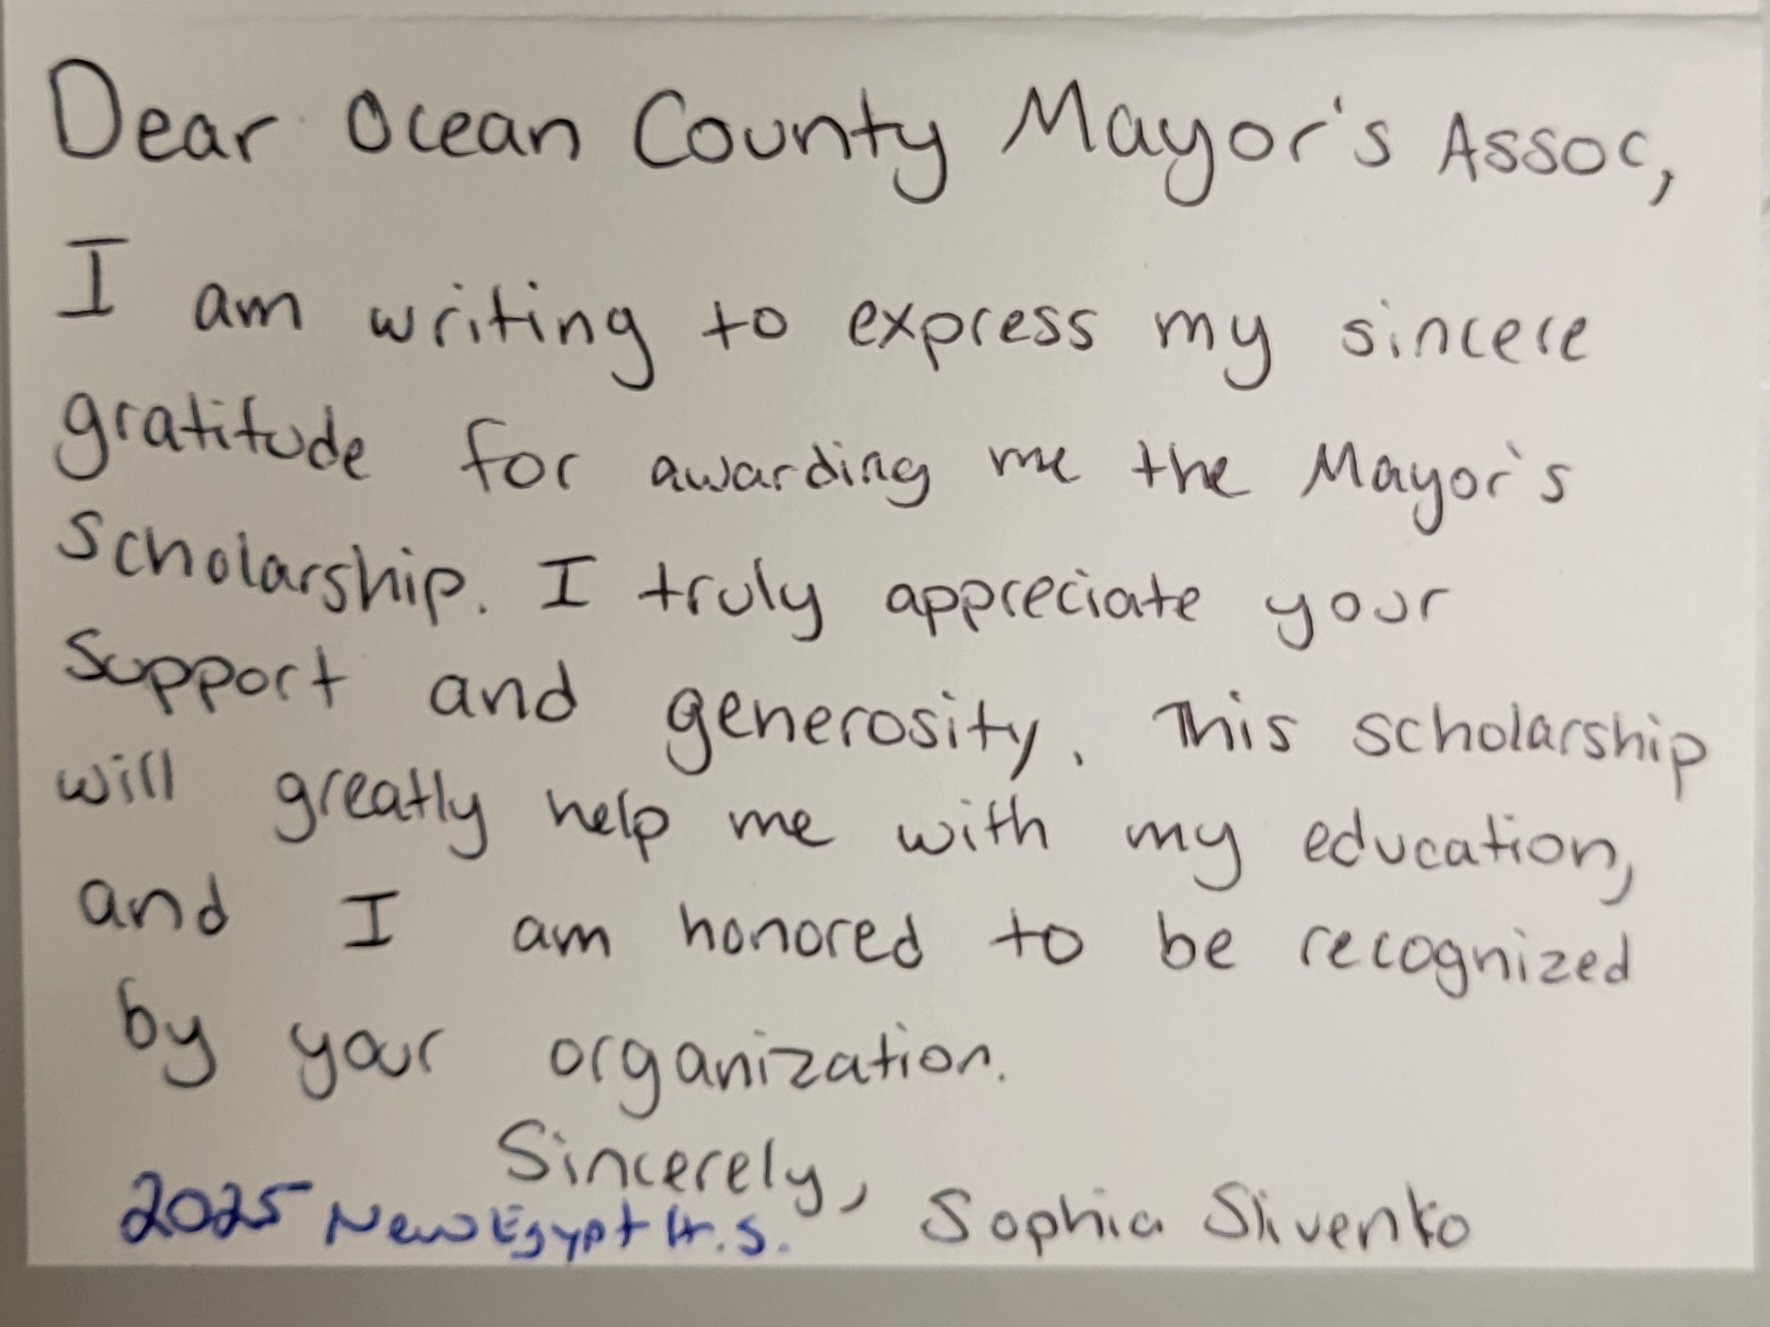 Dear Ocean County Mayor's Assoc,
I am writing to express my sincere
gratitude for awarding me the Mayor's
Scholarship. I truly appreciate your
support and generosity. This scholarship
will greatly help me with my education,
and I am honored to be recognized
by your organization.
Sincerely,
2025 New Egypt H.S. Sophia Slivenko